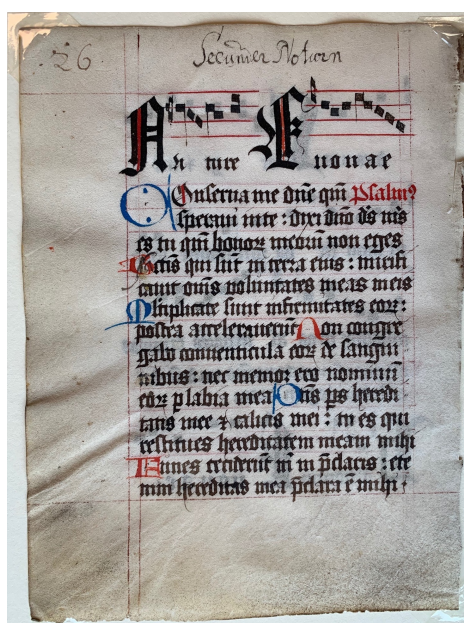 26 Secunder Noturn
An ture Euouae
Conserua me dne qm Psalm9
speraui in te : dixi dno ds ms
es tu qm bonoꝝ meoꝝ non eges
Sctis qui sut in terra eius : mirifi
cauit oms voluntates meas in eis
Mltiplicate sunt infirmitates eoꝝ :
postea accelerauerut Non congre
gabo conuenticula eoꝝ de sangui
nibus : nec memor ero nominu
eoꝝ p labia mea Dns ps heredi
tatis mee ⁊ calicis mei : tu es qui
restitues hereditatem meam mihi
Funes ceciderut m in pclaris : ete
nim hereditas mea pclara e mihi